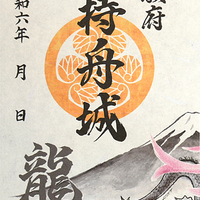 府
持舟城
令和六年 月 日
龍